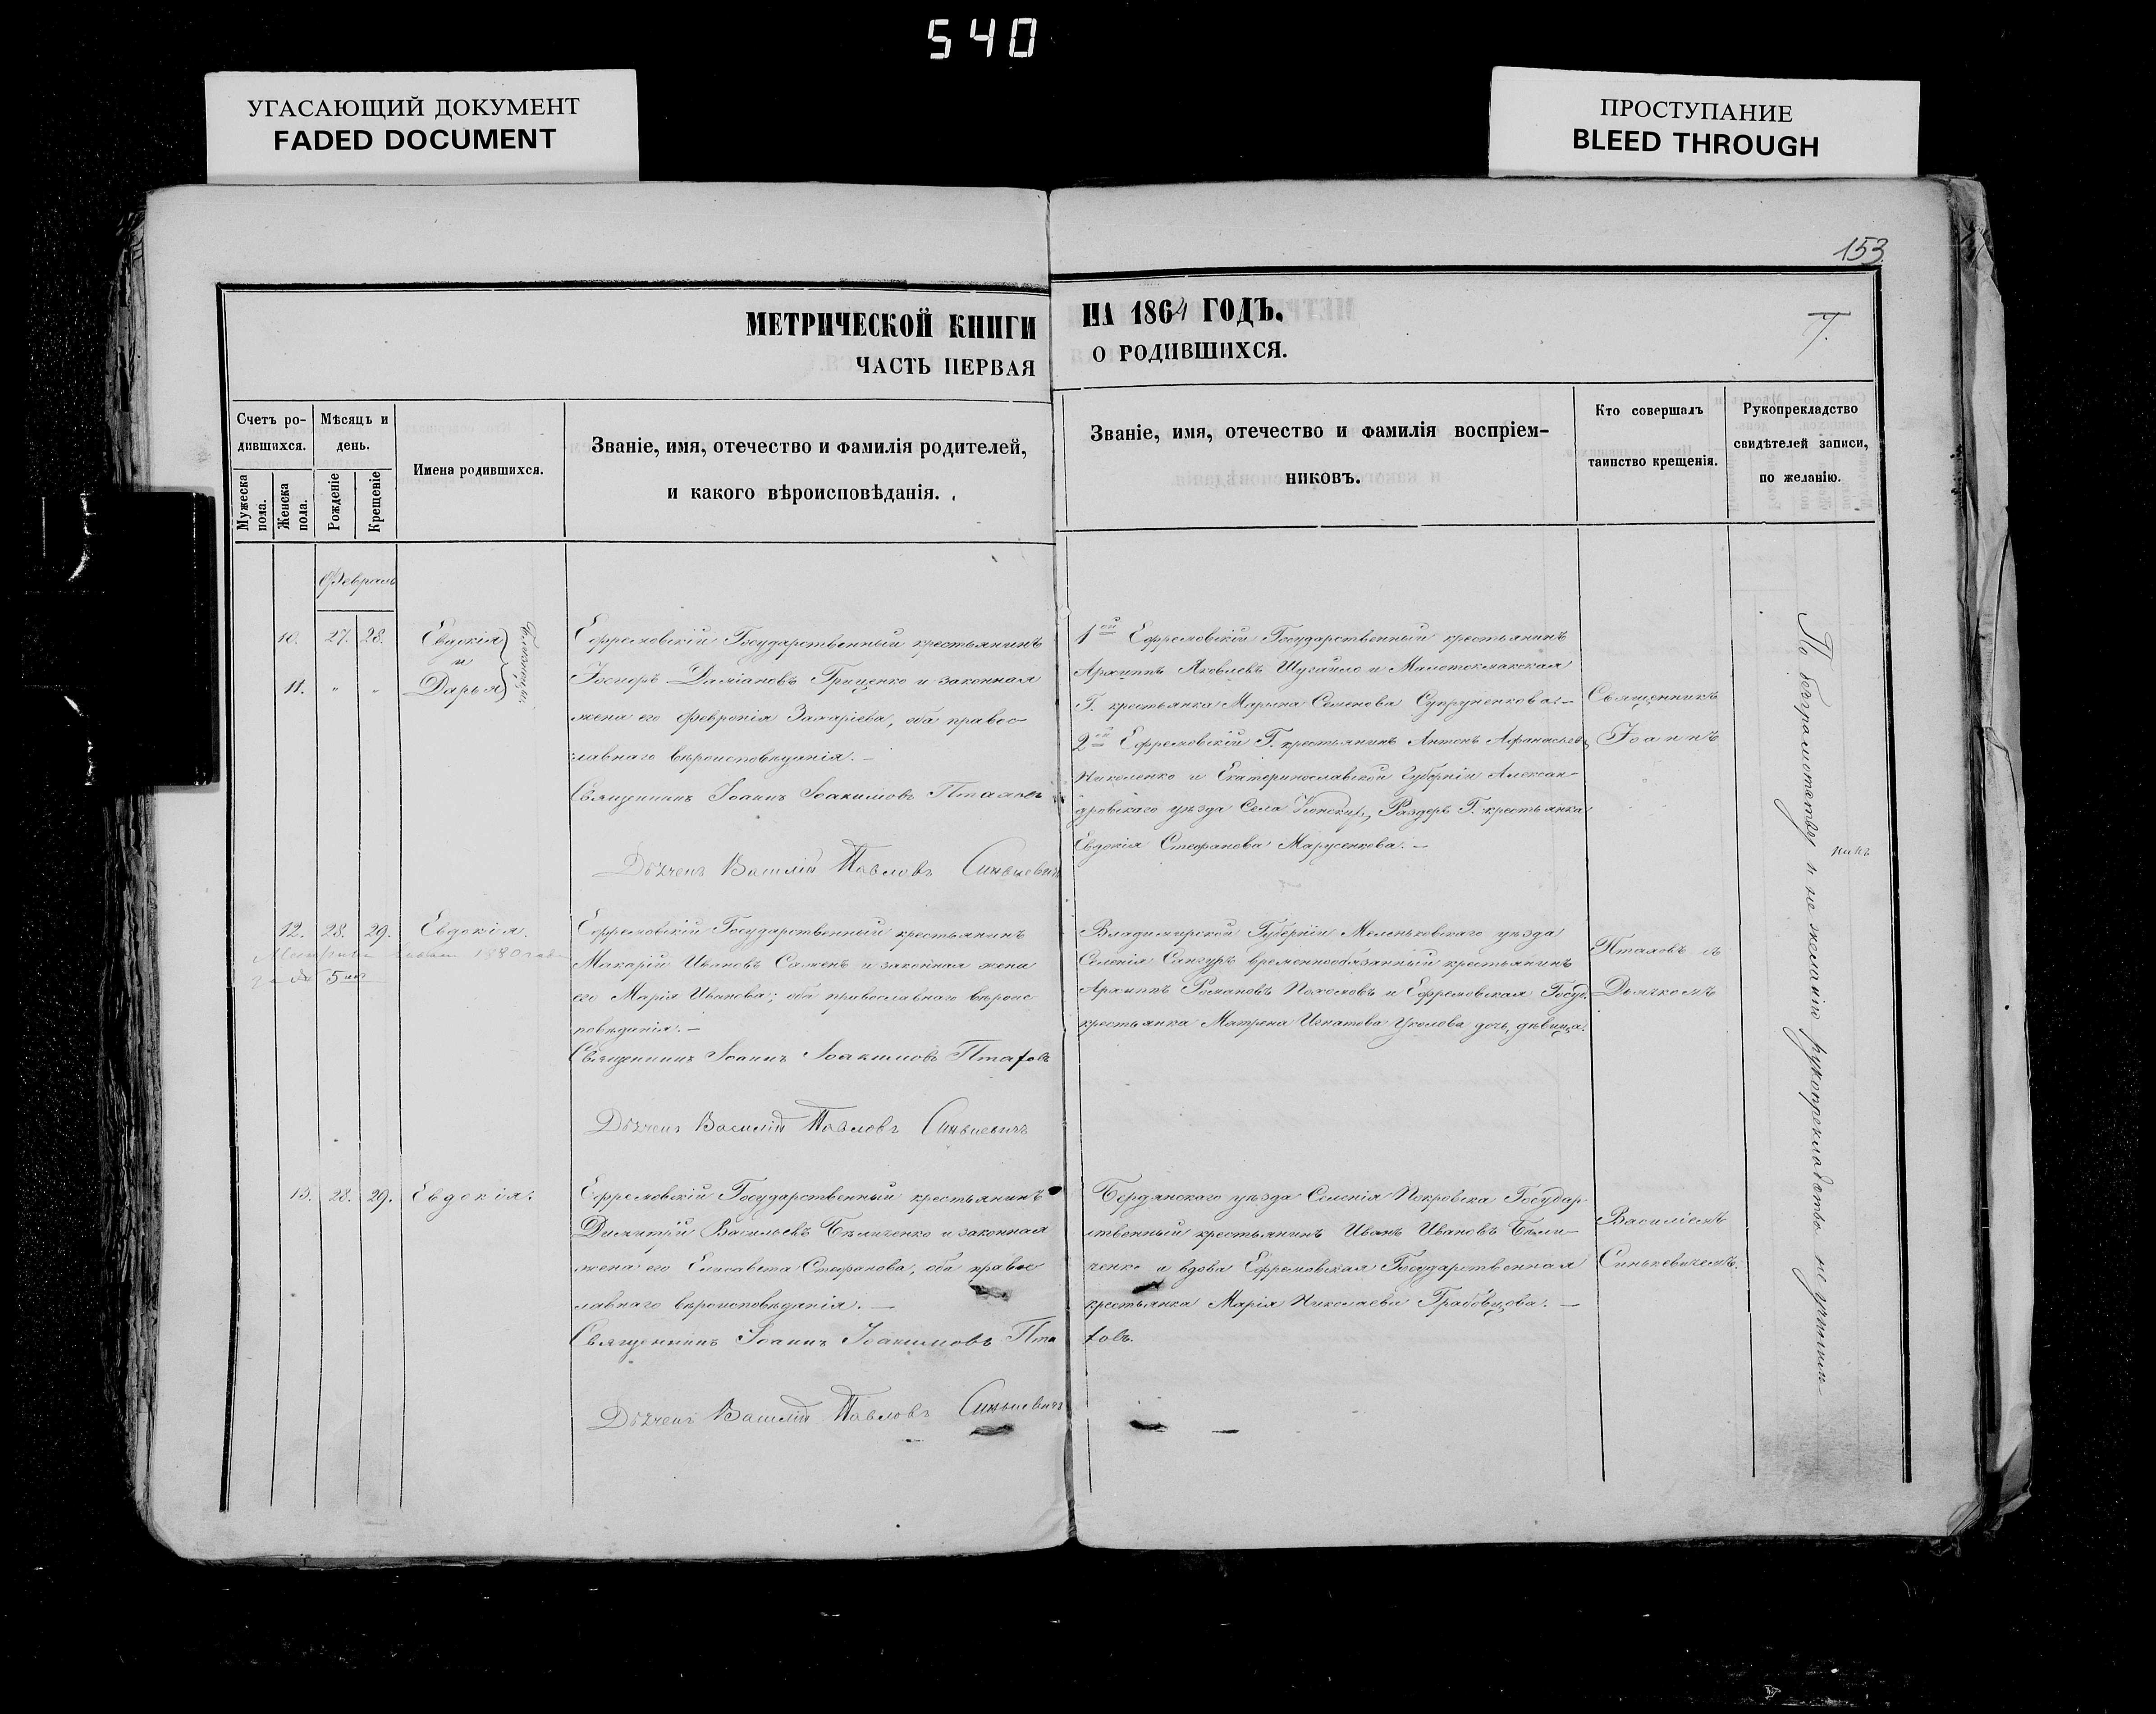 540
УГАСАЮЩИЙ ДОКУМЕНТ
FADED DOCUMENT
ПРОСТУПАНИЕ
BLEED THROUGH
153
МЕТРИЧЕСКОЙ КНИГИ
НА 1864 ГОДЪ.
ЧАСТЬ ПЕРВАЯ
О РОДИВШИХСЯ.
Счетъ ро-
дившихся.
Мужеска
пола.
Женска
пола.
Мѣсяцъ и
день.
Рожденіе
Крещеніе
Имена родившихся.
Званіе, имя, отечество и фамилія родителей,
и какого вѣроисповѣданія.
Званіе, имя, отечество и фамилія воспріем-
никовъ.
Кто совершалъ
таинство крещенія.
Рукопрекладство
свидѣтелей записи,
по желанію.
Февраль
10. 27. 28. Евдокія
и
11. " " Дарья
близнецы.
Ефремовскій Государственный крестьянинъ
Даміановъ Гриценко и законная
жена его Февронія Захаріева, оба правос-
лавнаго вѣроисповѣданія.—
Священникъ Іоаннъ Іоакимовъ Птаховъ
Дьячекъ Василій Павловъ Синькевичъ
1ой Ефремовскій Государственный крестьянинъ
Архиппъ Яковлевъ Шугайло и Малотокмакская
Г. крестьянка Марѳна Семенова Супруненкова.—
2ой Ефремовскій Г. крестьянинъ Антонъ Афанасьевъ
Николенко и Екатеринославской Губерніи Алексан-
дровскаго уѣзда Села Конскихъ Раздоръ Г. крестьянка
Евдокія Стефанова Марусенкова.—
Священникъ
Іоаннъ
12. 28. 29. Евдокія.
1880
Ефремовскій Государственный крестьянинъ
Макарій Ивановъ и законная жена
его Марія Иванова; оба православнаго вѣроис-
повѣданія.—
Священникъ Іоаннъ Іоакимовъ Птаховъ
Дьячекъ Василій Павловъ Синькевичъ
Владимирской Губерніи Меленьковскаго уѣзда
Селенія Сангуръ временнообязанный крестьянинъ
Архиппъ Романовъ и Ефремовская Госуд.
крестьянка Матрена Игнатова Уколова дочь, дѣвица.
Птаховъ съ
Дьячкомъ
13. 28. 29. Евдокія.
Ефремовскій Государственный крестьянинъ
Димитрій Васильевъ Бѣличенко и законная
жена его Елисавета Стефанова, оба правос
лавнаго вѣроисповѣданія.—
Священникъ Іоаннъ Іоакимовъ Пта
ховъ.
Дьячекъ Василій Павловъ Синькевичъ
Бердянскаго уѣзда Селенія Покровка Государ-
ственный крестьянинъ Иванъ Ивановъ Бѣли-
ченко и вдова Ефремовская Государственная
крестьянка Марія Николаева Грабовцова.—
Василіемъ
Синькевичемъ.
По безграмотству и не желанію рукоприкладства не учинили